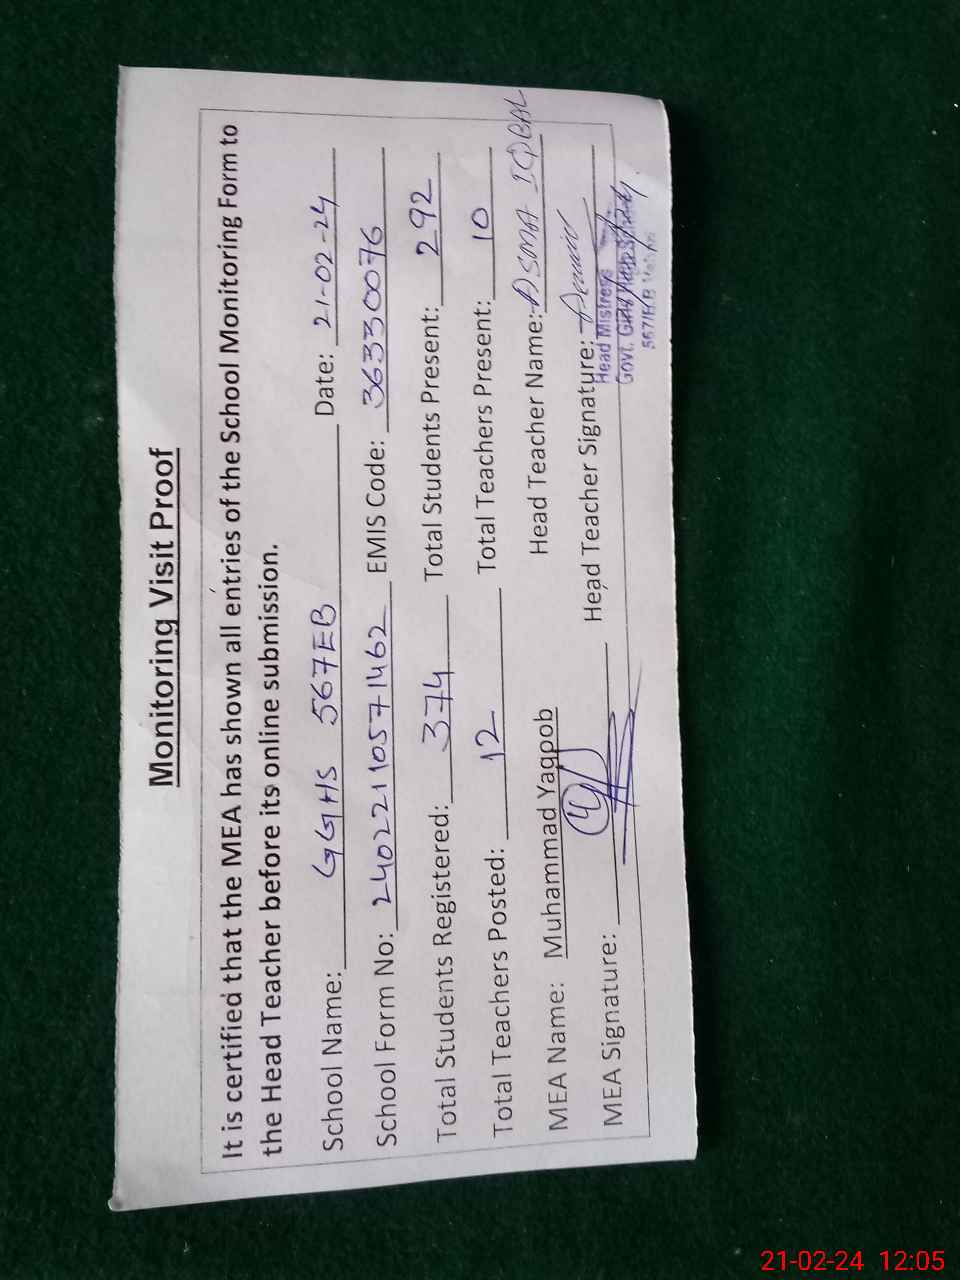 Monitoring Visit Proof
It is certified that the MEA has shown all entries of the School Monitoring Form to
the Head Teacher before its online submission.
School Name: GGHS 567EB Date: 21-02-24
School Form No: 240221105571462 EMIS Code: 36330076
Total Students Registered: 374 Total Students Present: 292
Total Teachers Posted: 12 Total Teachers Present: 10
MEA Name: Muhammad Yaqoob Head Teacher Name: ASMA IQBAL
MEA Signature: Head Teacher Signature:
Head Mistress
Govt. Girls High School
567/EB
21-02-24 12:05